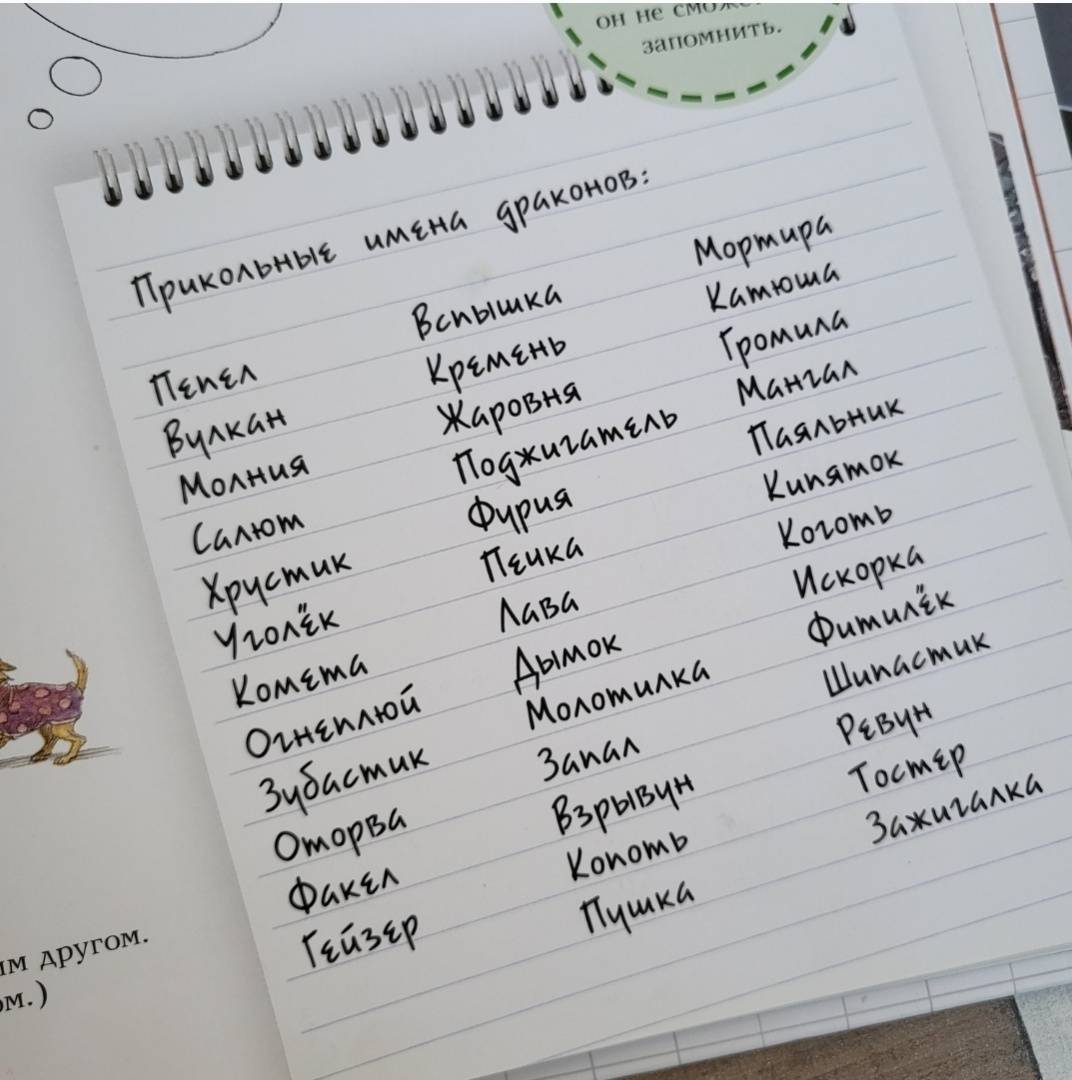 он не
запомнить.
Прикольные имена драконов:
Пепел
Вулкан
Молния
Салют
Хрустик
Уголёк
Комета
Огнеплюй
Зубастик
Оторва
Факел
Гейзер
Вспышка
Кремень
Жаровня
Поджигатель
Фурия
Печка
Лава
Дымок
Молотилка
Запал
Взрывун
Копоть
Пушка
Мортира
Катюша
Громила
Мангал
Паяльник
Кипяток
Коготь
Искорка
Фитилёк
Шипастик
Ревун
Тостер
Зажигалка
другом.